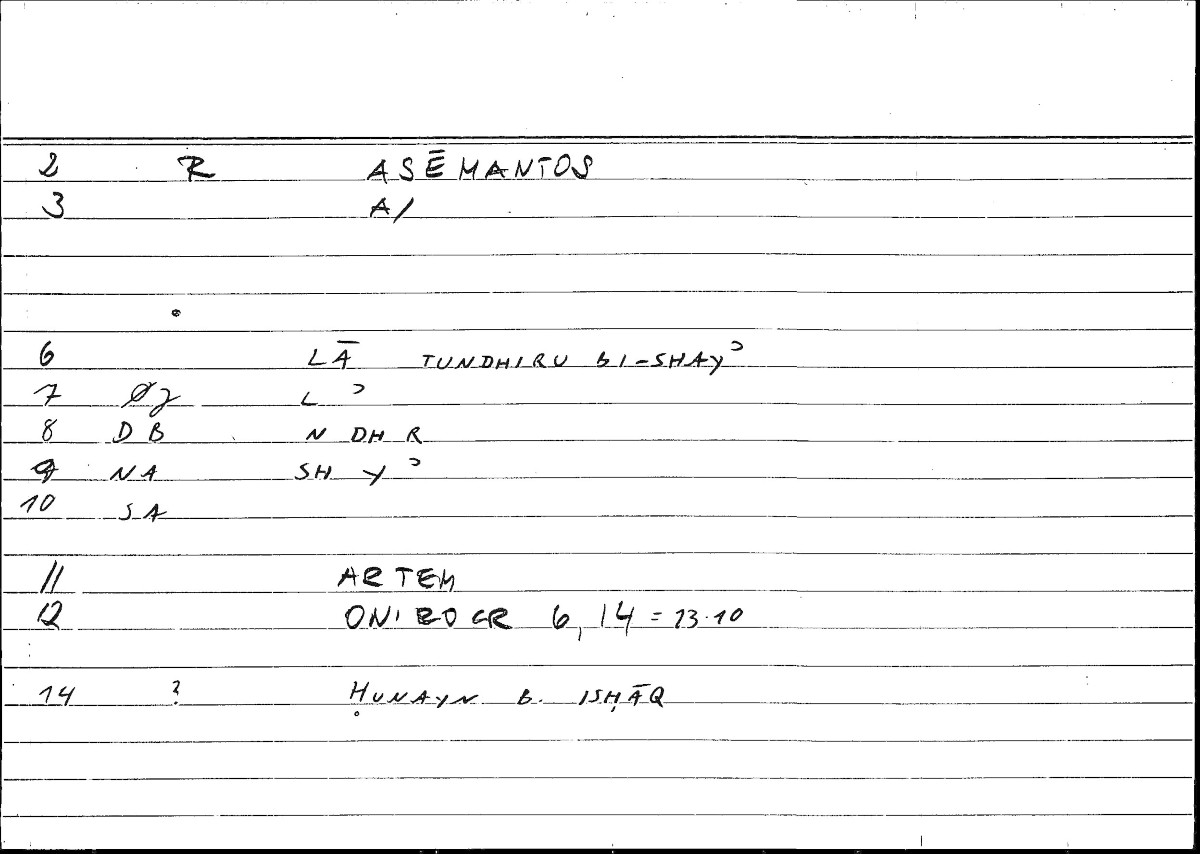 2 R ASĒMANTOS
3 A/
6 LĀ TUNDHIRU BI-SHAYʾ
7 Øz L ʾ
8 DB N DH R
9 NA SH Y ʾ
10 SA
11 ARTEM
12 ONIROCR 6,14 = 13.10
14 ? ḤUNAYN B. ISḤĀQ